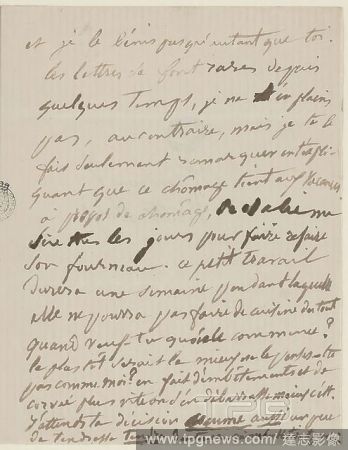 et je le bénis presqu'autant que toi.
les lettres se font rares depuis
quelques temps, je ne m'en plains
pas, au contraire, mais je te le
fais seulement remarquer en t'expli-
quant que ce chômage tient aux vacances
à propos de chômage,
tous les jours pour faire refaire
son fourneau. ce petit travail
durera une semaine pendant laquelle
elle ne pourra pas faire de cuisine du tout
quand veux tu qu'elle commence?
le plus tôt serait le mieux ne le penses-tu
pas comme moi? en fait d'embêtements et de
corvée plus tôt on s'en débarrasse mieux c'est.
J'attends ta décision aussi un peu
de tendresse
TPG
www.tpgnews.com / 達志影像